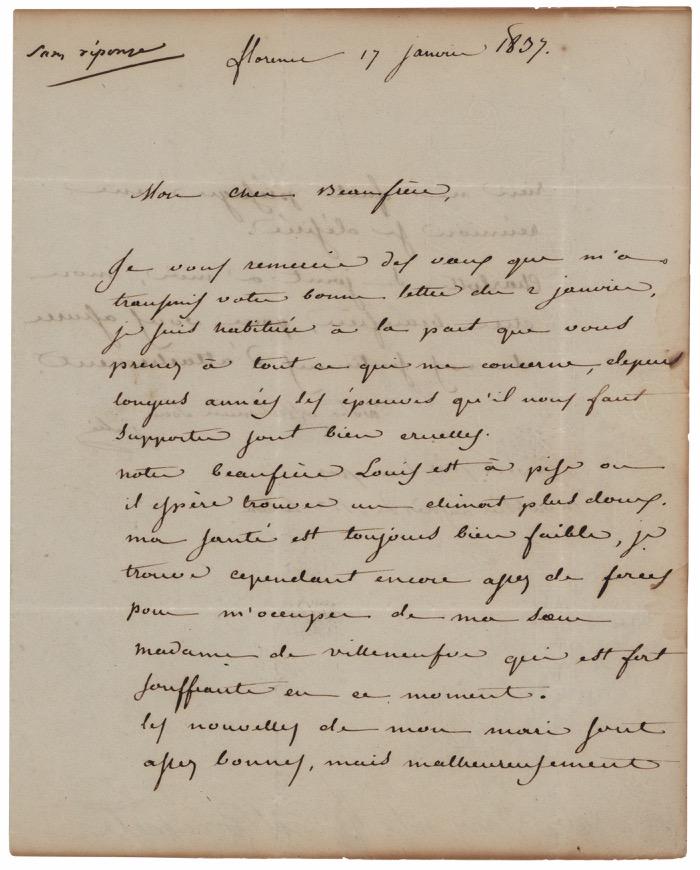 Sans réponse
florence 17 janvier 1837.
Mon cher Beaufrère,
Je vous remercie des vœux que m'a
transmis votre bonne lettre du 2 janvier,
je suis habituée à la part que vous
prenez à tout ce qui me concerne, depuis
longues années les épreuves qu'il nous faut
supporter sont bien cruelles.
notre beaufrère Louis est à pise ou
il espère trouver un climat plus doux.
ma santé est toujours bien faible, je
trouve cependant encore assez de forces
pour m'occuper de ma sœur
madame de villeneufve qui est fort
souffrante en ce moment.
les nouvelles de mon mari sont
assez bonnes, mais malheureusement